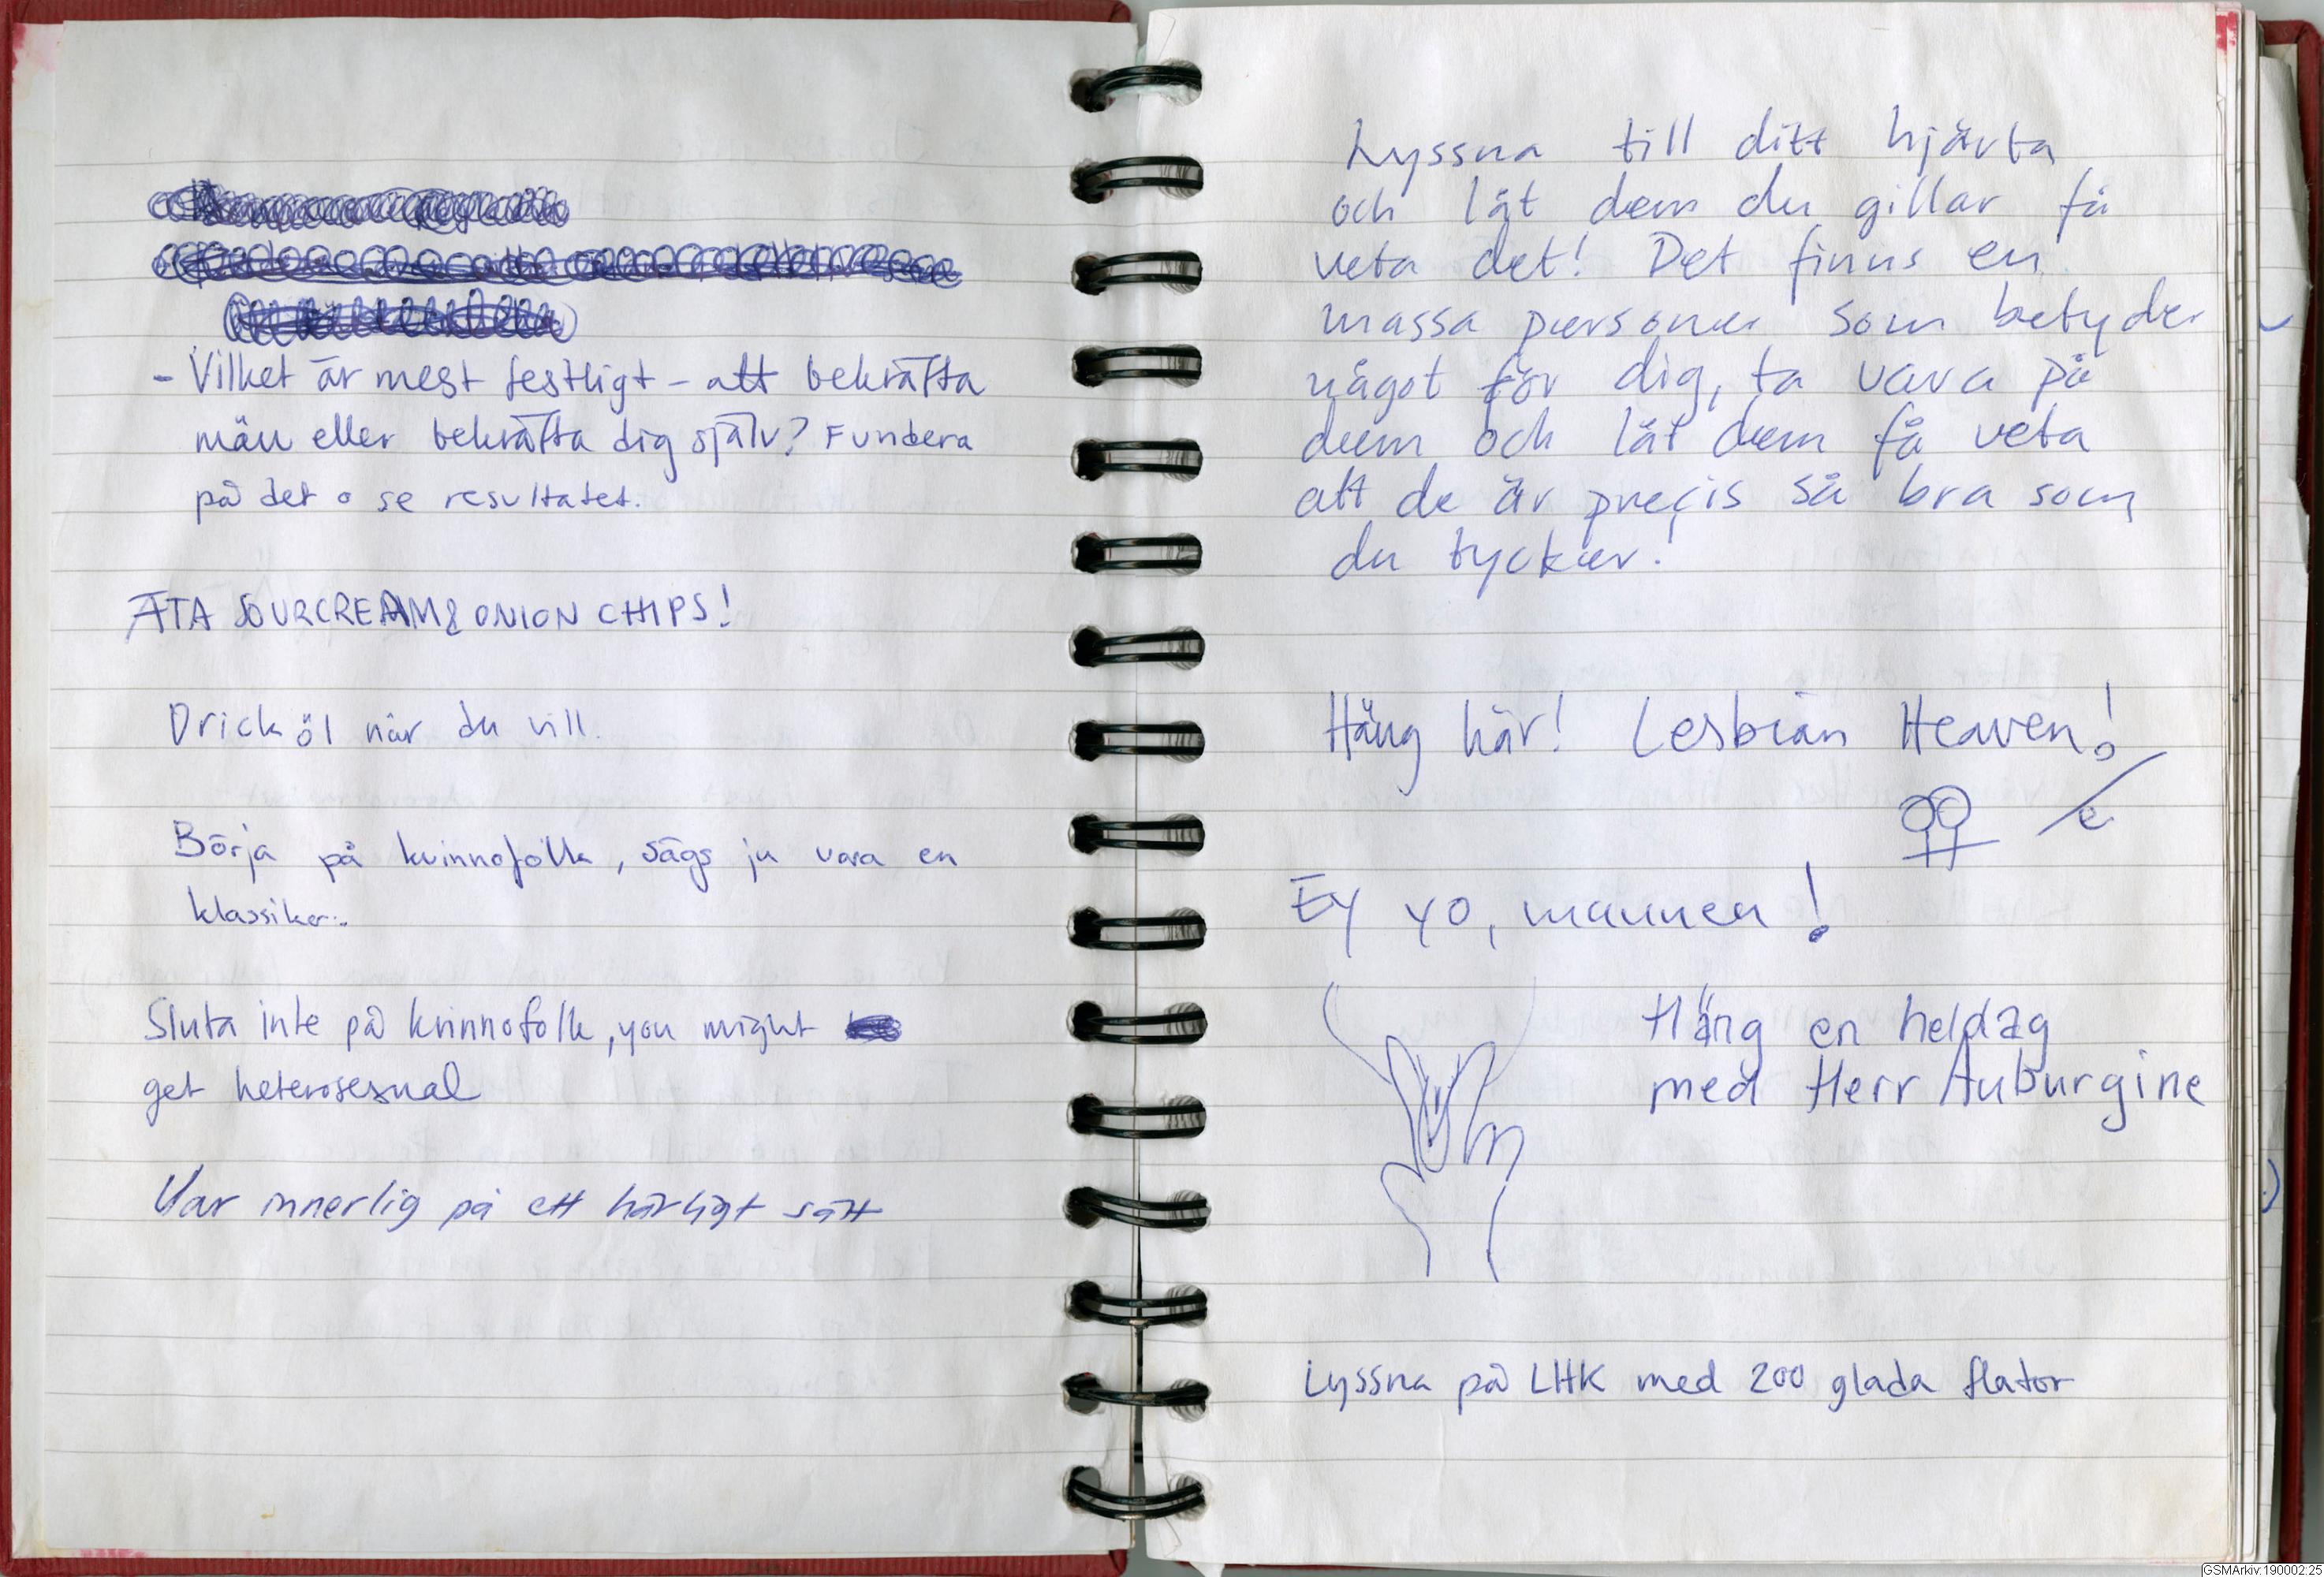 - Vilket är mest festligt - att bekräfta
män eller bekräfta dig själv? Fundera
på det o se resultatet.
ÄTA SOURCREAM & ONION CHIPS!
Drick öl när du vill.
Börja på kvinnofolk, sägs ju vara en
klassiker..
Sluta inte på kvinnofolk, you might
get heterosexual
Var innerlig på ett härligt sätt
Lyssna till ditt hjärta
och låt dem du gillar få
veta det! Det finns en
massa personer som betyder
något för dig, ta vara på
dem och låt dem få veta
att de är precis så bra som
du tycker!
Häng här! Lesbian Heaven!
Ey yo, mannen!
Häng en heldag
med Herr Auburgine
Lyssna på LHK med 200 glada flator
GSMArkiv:190002:25